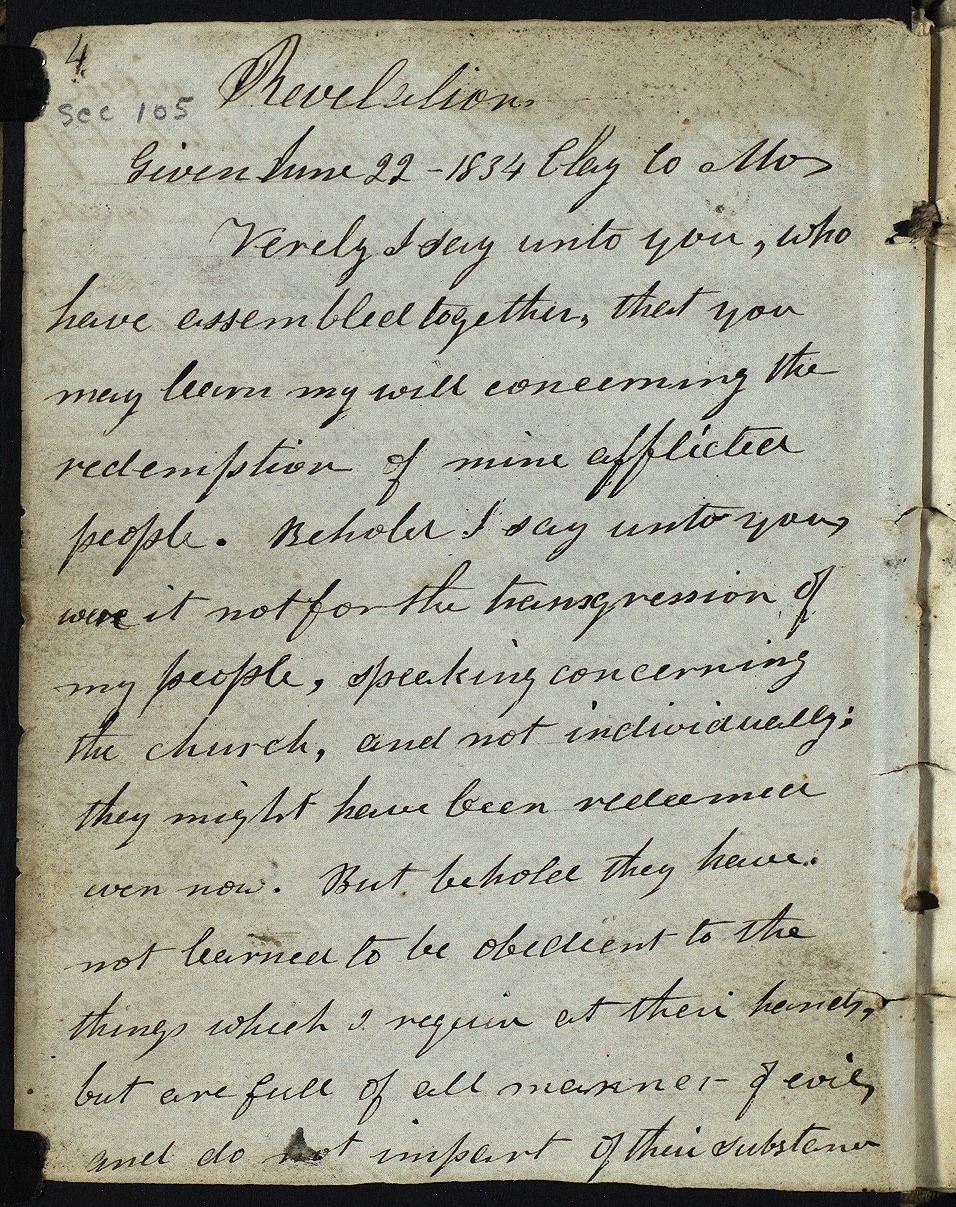 4
Sec 105
Revelation.
Given June 22 - 1834 Clay Co Mo
Verely I say unto you, who
have assembled together, that you
may learn my will concerning the
redemption of mine afflicted
people. Behold I say unto you,
were it not for the transgression of
my people, speaking concerning
the church, and not individually;
they might have been redeemed
even now. But behold they have
not learned to be obedient to the
things which I require at their hands,
but are full of all manner of evil,
and do not impart of their substance